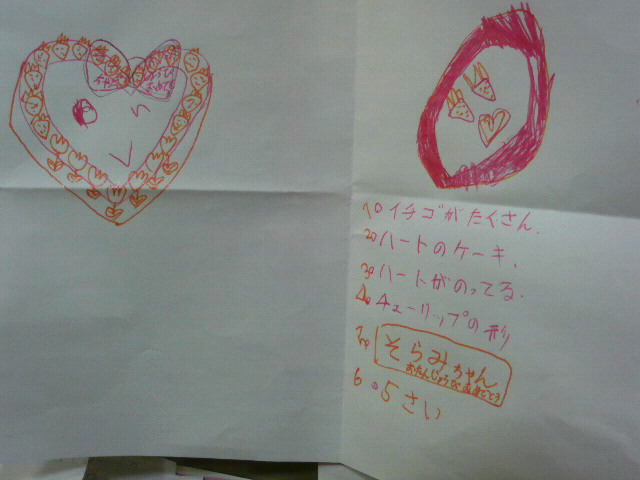 1. イチゴがたくさん.
2. ハートのケーキ.
3. ハートがのってる.
4. チューリップの形
5. そらみちゃん
おたんじょうびおめでとう
6. 5さい